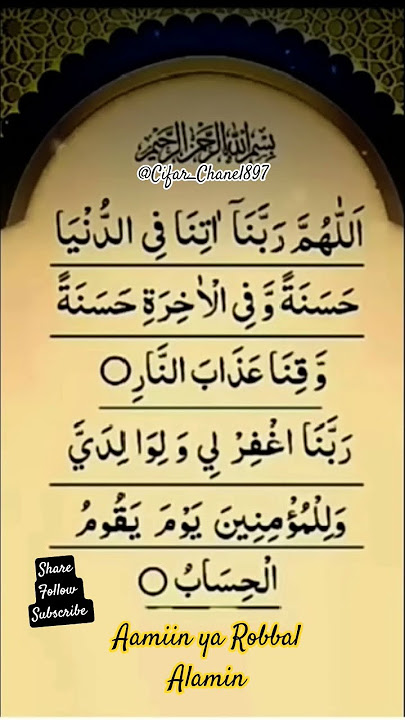 بسم الله الرحمن الرحيم
@Cifar_Chanel897
اَللّٰهُمَّ رَبَّنَآ اٰتِنَا فِي الدُّنْيَا
حَسَنَةً وَّفِي الْاٰخِرَةِ حَسَنَةً
وَّقِنَا عَذَابَ النَّارِ ○
رَبَّنَا اغْفِرْ لِي وَلِوَا لِدَيَّ
وَلِلْمُؤْمِنِينَ يَوْمَ يَقُومُ
الْحِسَابُ ○
Share
Follow
Subscribe
Aamiin ya Robbal
Alamin